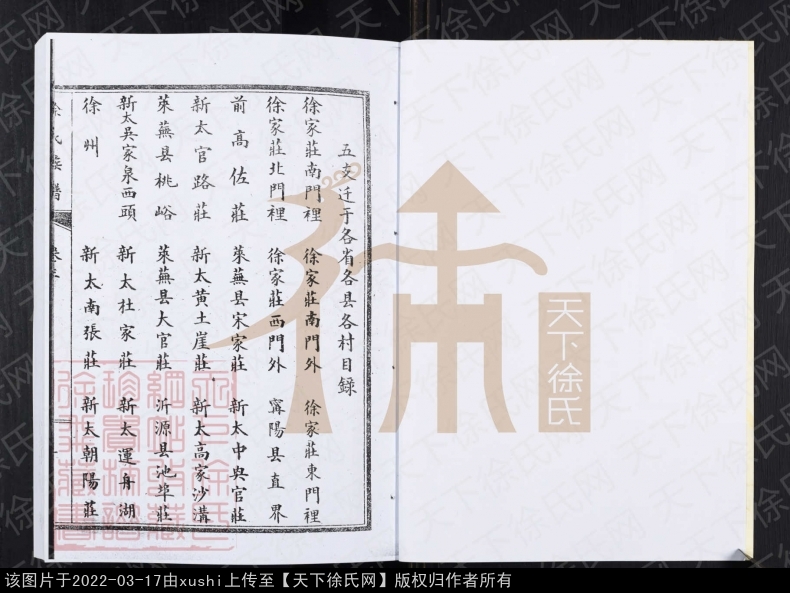 五支迁于各省各县各村目錄
徐家莊南門裡 徐家莊南門外 徐家莊東門裡
徐家莊北門裡 徐家莊西門外 甯陽县直界
前高佐莊 萊蕪县宋家莊 新太中央官莊
新太官路莊 新太黄土崖莊 新太高家沙溝
萊蕪县桃峪 萊蕪县大官莊 沂源县池埠莊
新太吴家泉西頭 新太杜家莊 新太運舟湖
徐州 新太南張莊 新太朝陽莊
徐氏族譜
天下徐氏
天下徐氏网
该图片于2022-03-17由xushi上传至【天下徐氏网】版权归作者所有